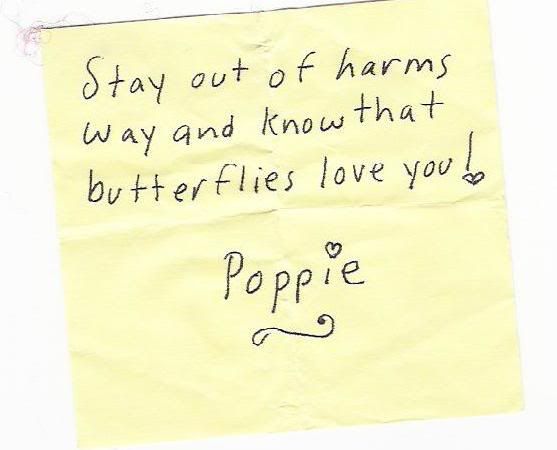 Stay out of harms
way and know that
butterflies love you!
Poppie